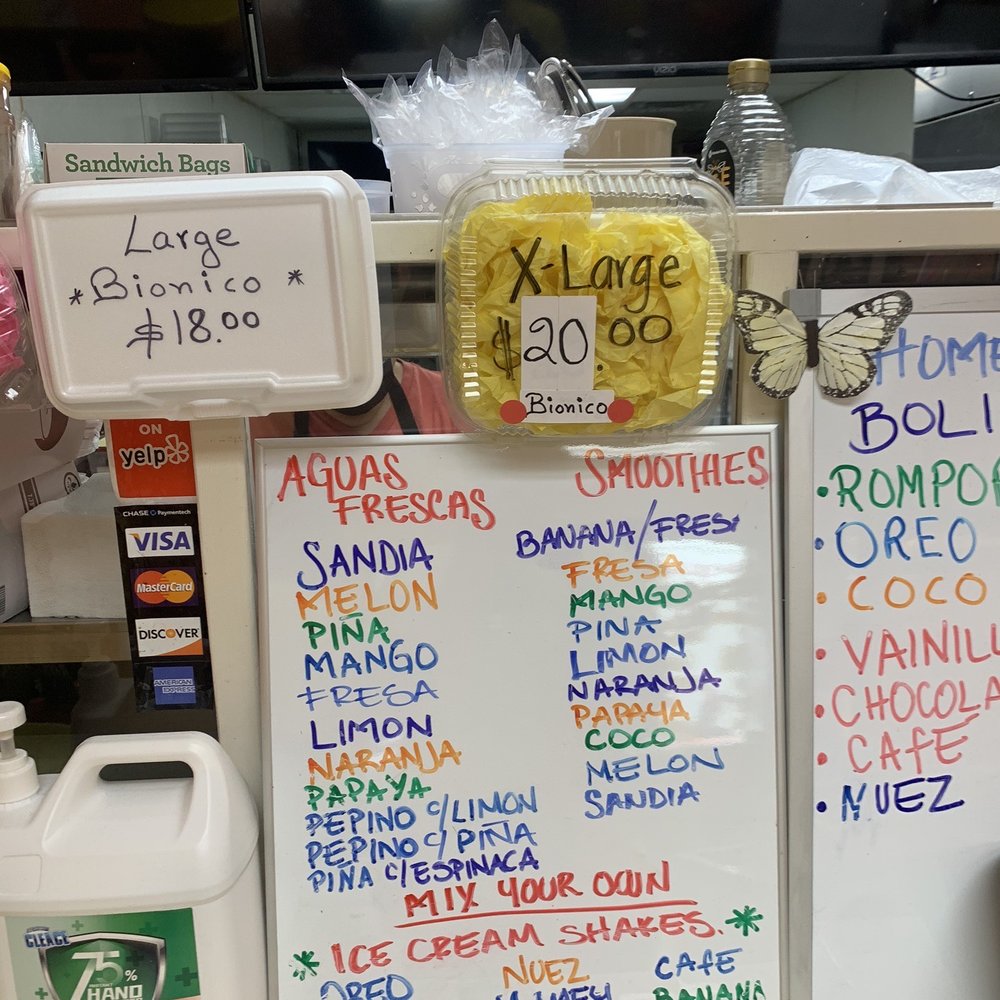 VIZIO
Sandwich Bags
Large
*Bionico*
$18.00
X-Large
$20.00
Bionico
ON
yelp
CHASE Paymentech
VISA
MasterCard
DISCOVER
AMERICAN
EXPRESS
AGUAS
FRESCAS
SANDIA
MELON
PIÑA
MANGO
FRESA
LIMON
NARANJA
PAPAYA
PEPINO C/LIMON
PEPINO C/PIÑA
PIÑA C/ESPINACA
SMOOTHIES
BANANA/FRES
FRESA
MANGO
PINA
LIMON
NARANJA
PAPAYA
COCO
MELON
SANDIA
MIX YOUR OWN
*ICE CREAM SHAKES.*
OREO
NUEZ
CAFE
BANANA
HOME
BOLI
•ROMPO
•OREO
•COCO
•VAINILL
•CHOCOLA
•CAFE
•NUEZ
CLEACE
75%
INSTANT
HAND